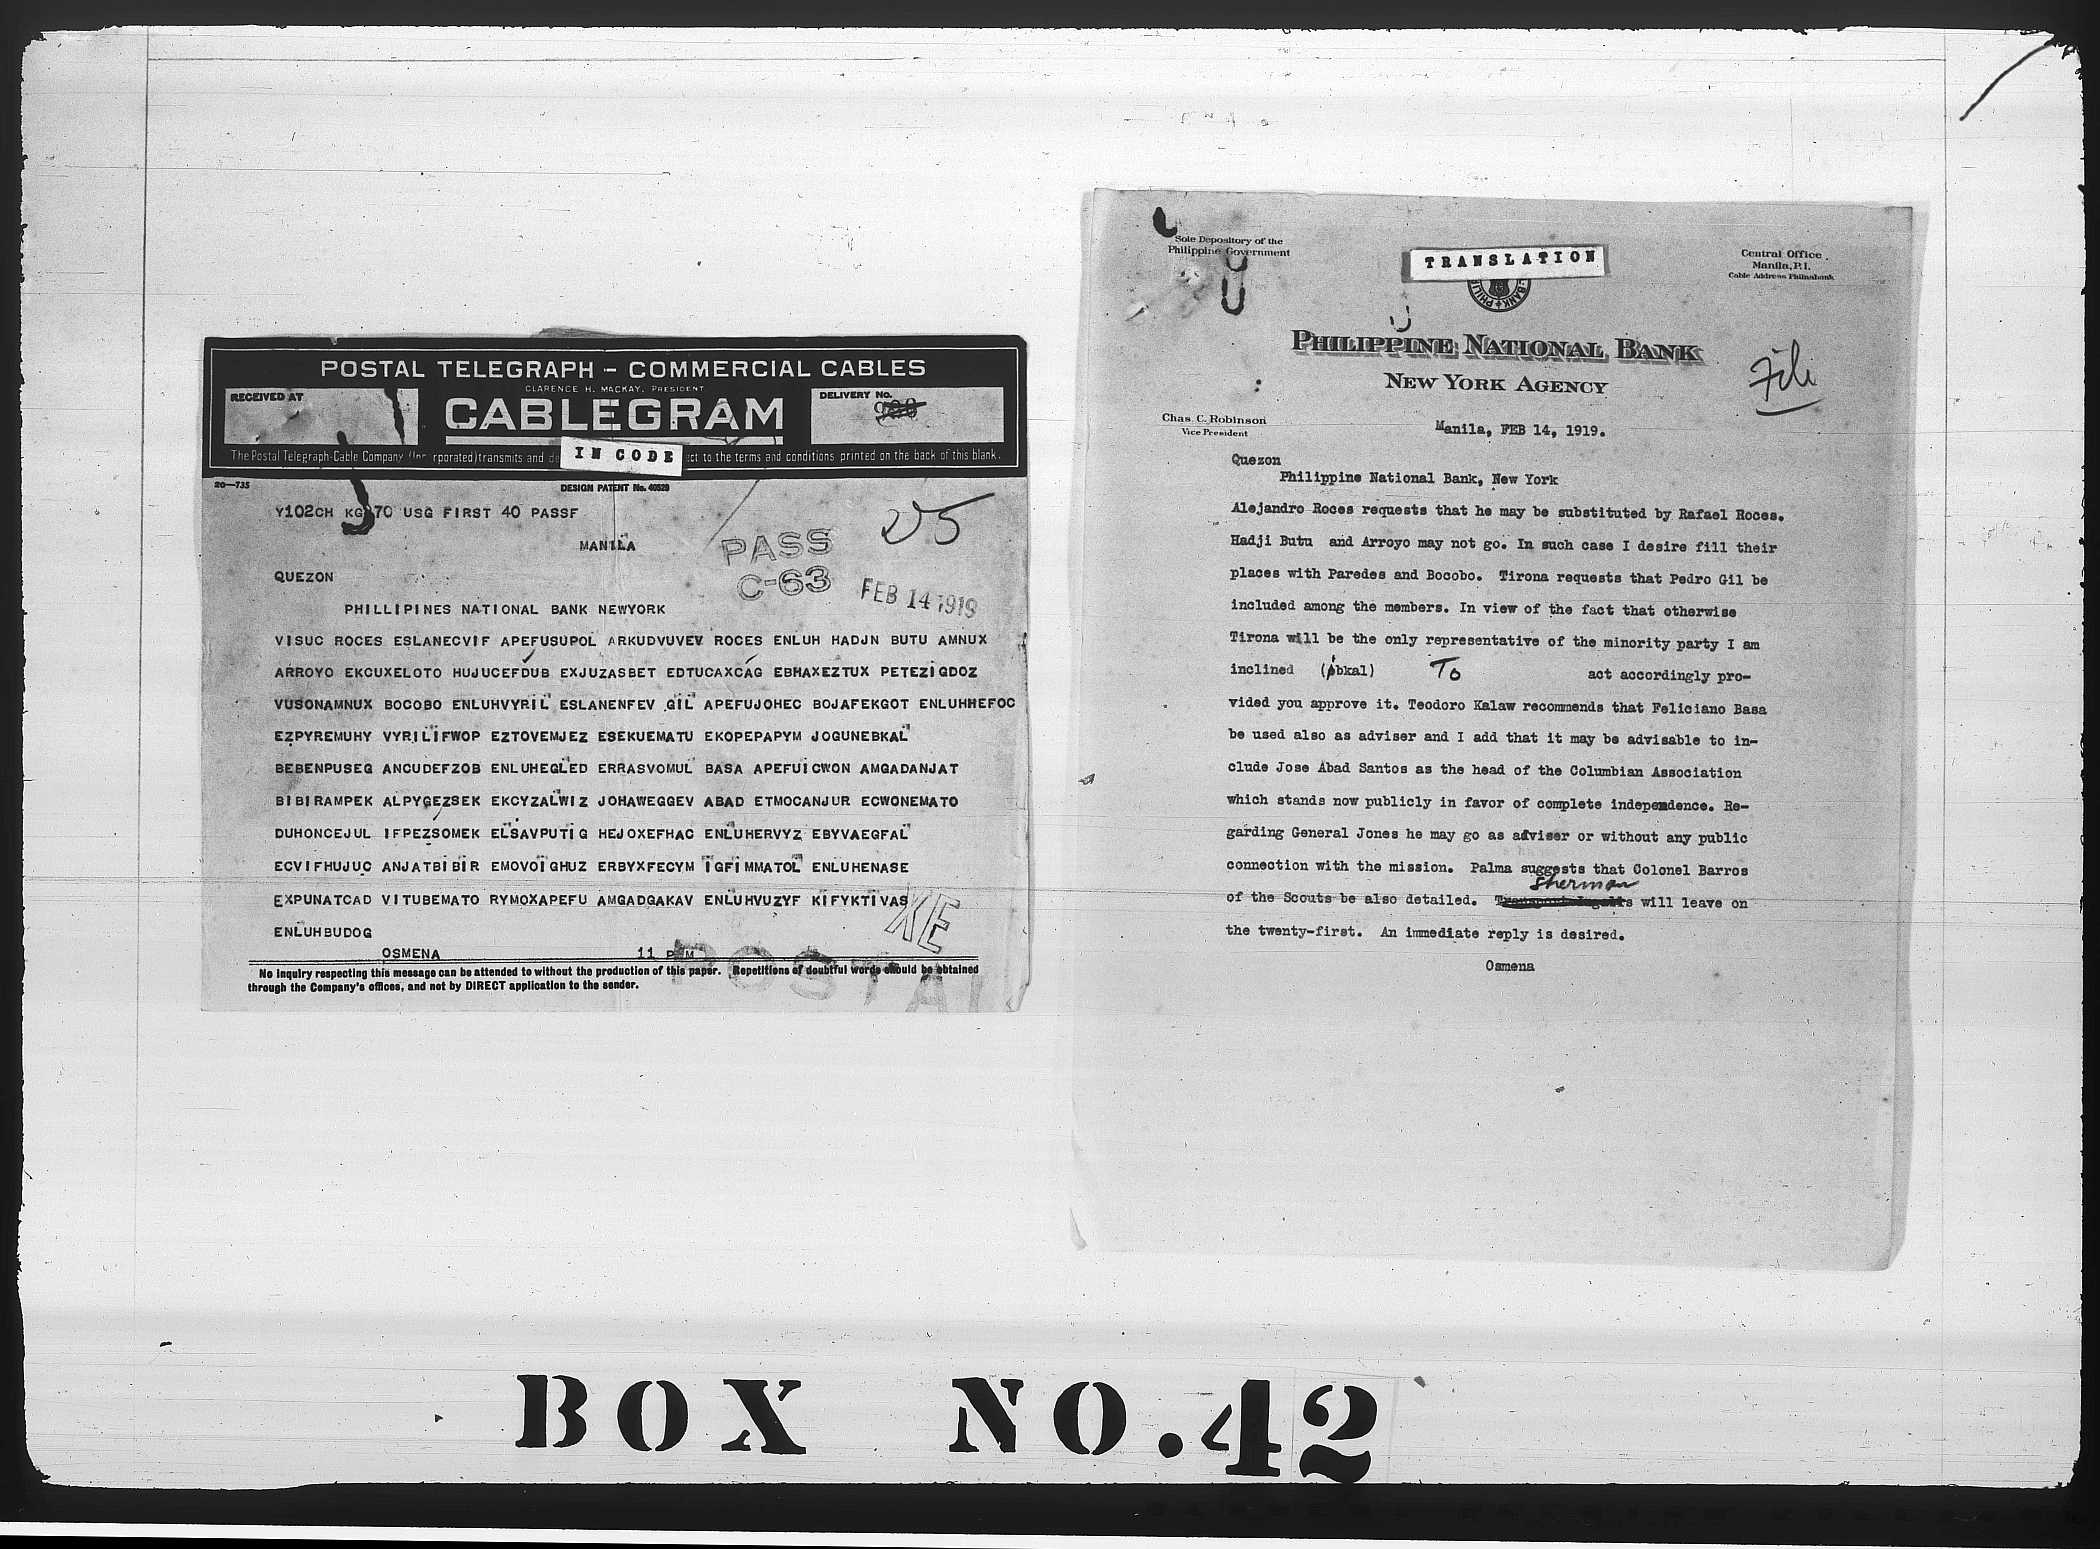 POSTAL TELEGRAPH - COMMERCIAL CABLES
CLARENCE H. MACKAY, PRESIDENT
RECEIVED AT
CABLEGRAM
DELIVERY No.
The Postal Telegraph-Cable Company (Inc rporated) transmits and de
IN CODE
ect to the terms and conditions printed on the back of this blank.
20—735
DESIGN PATENT No. 40529
Y102CH KG 70 USG FIRST 40 PASSF
25
MANILA
PASS
C-63
FEB 14 1919
QUEZON
PHILLIPINES NATIONAL BANK NEWYORK
VISUC ROCES ESLANECVIF APEFUSUPOL ARKUDVUVEV ROCES ENLUH HADJN BUTU AMNUX
ARROYO EKCUXELOTO HUJUCEFDUB EXJUZASBET EDTUCAXCAG EBHAXEZTUX PETEZIGDOZ
VUSONAMNUX BOCOBO ENLUHVYRIL ESLANENFEV GIL APEFUJOHEC BOJAFEKGOT ENLUHHEFOC
EZPYREMUHY VYRILIFWOP EZTOVEMJEZ ESEKUEMATU EKOPEPAPYM JOGUNEBKAL
BEBENPUSEG ANCUDEFZOB ENLUHEGLED ERRASVOMUL BASA APEFUICWON AMGADANJAT
BIBIRAMPEK ALPYGEZSEK EKCYZALWIZ JOHAWEGGEV ABAD ETMOCANJUR ECWONEMATO
DUHONCEJUL IFPEZSOMEK ELSAVPUTIG HEJOXEFHAC ENLUHERVYZ EBYVAEGFAL
ECVIFHUJUC ANJATBIBIR EMOVOIGHUZ ERBYXFECYM IGFIMMATOL ENLUHENASE
EXPUNATCAD VITUBEMATO RYMOXAPEFU AMGADGAKAV ENLUHVUZYF KIFYKTIVAS
ENLUHBUDOG
XE
OSMENA 11 P M
POSTAL
No inquiry respecting this message can be attended to without the production of this paper. Repetitions of doubtful words should be obtained
through the Company's offices, and not by DIRECT application to the sender.
Sole Depository of the
Philippine Government
TRANSLATION
Central Office
Manila, P.I.
Cable Address Philnabank
PHILIPPINE NATIONAL BANK
NEW YORK AGENCY
File
Chas. C. Robinson
Vice President
Manila, FEB 14, 1919.
Quezon
Philippine National Bank, New York
Alejandro Roces requests that he may be substituted by Rafael Roces.
Hadji Butu and Arroyo may not go. In such case I desire fill their
places with Paredes and Bocobo. Tirona requests that Pedro Gil be
included among the members. In view of the fact that otherwise
Tirona will be the only representative of the minority party I am
inclined (ebkal) To act accordingly pro-
vided you approve it. Teodoro Kalaw recommends that Feliciano Basa
be used also as adviser and I add that it may be advisable to in-
clude Jose Abad Santos as the head of the Columbian Association
which stands now publicly in favor of complete independence. Re-
garding General Jones he may go as adviser or without any public
connection with the mission. Palma suggests that Colonel Barros
Sherman
of the Scouts be also detailed. will leave on
the twenty-first. An immediate reply is desired.
Osmena
BOX NO. 42